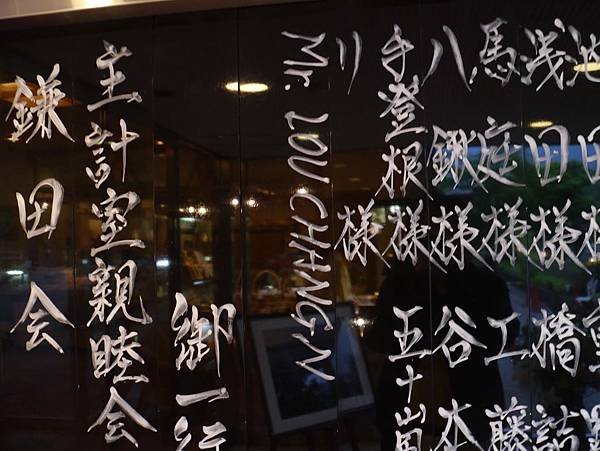 池田様
浅田様 橋詰
馬庭様 工藤
八鍬様 谷本
手登根様 五十嵐
様
Mr. LOU CHANG-N
御一行
主計室親睦会
鎌田会